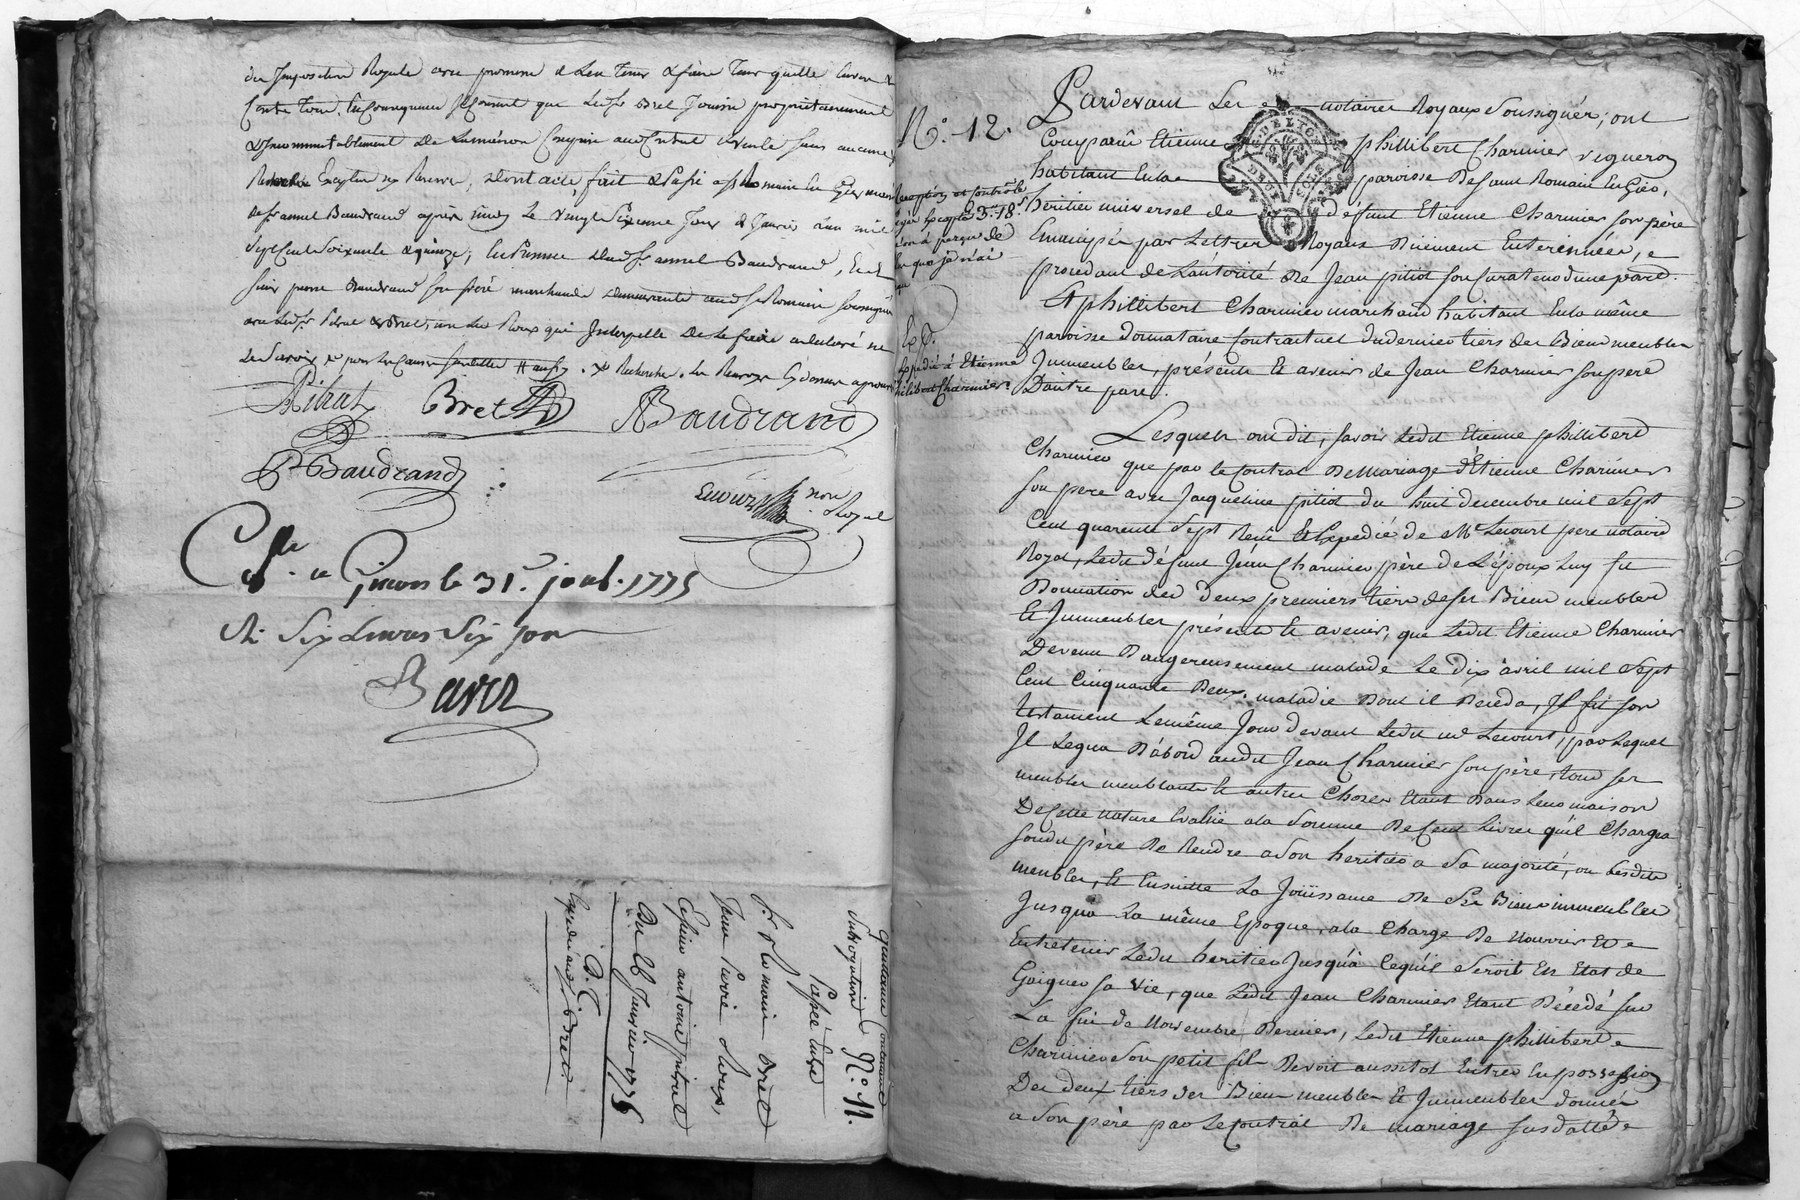 du Imposition Royale avec promesse de Len tenir & faire tenir quitte Envers &
Contre tous. En Consequence Il Consent que Led. Sr Bret Jouisse proprietairement
& Incommutablement De La maison Comprise aud Contrat de vente sans aucune
Exception ny Reserve, dont acte, fait & Passé a St Romain En Gier maison
de Sr annet Baudrand après midy Le vingt Sixieme Jour de Janvier L'an mil
Sept Cent Soixante & quinze, En Presence dud. Sr annet Baudrand, & de
Sieur pierre Baudrand son frère marchands demeurants aud St Romain soussignés
avec Led. Sr Pitrat & Bret, non Led. Roux qui Interpellé De Le faire a declaré ne
Le Savoir
Pitrat Bret ABaudrand
PBaudrand
Lecourt non. Royal
C.lé a Givors le 31.e janv. 1775
R. Six Livres Six sous
Baret
quittance Contenant
Subrogation N.° 11.
Passée entre
Sr. Romain Bret
Jean Pierre Roux,
& Sieur antoine pitrat
Du 26 Janvier 1775
D. C.
Expedié aud. Sr. Bret.
N.° 12.
Reception et Contrôle
L'expédié à Etienne
philibert Charmier.
Pardevant Les notaires Royaux Soussignés, ont
Comparû Etienne phillibert Charmier vigneron
habitant En la paroisse De Saint Romain En Gier,
heritier universel de défunt Etienne Charmier son père
Emancipé par Lettres Royaux Duement Enterinnées, &
procedant de L'autorité de Jean pitiot son Curateur d'une part.
Et phillibert Charmier marchand habitant En la même
paroisse donnataire Contractuel du dernier tiers des Biens meubles
Immeubles, présents & avenir de Jean Charmier son pere
D'autre part.
Lesquels ont dit, savoir Ledit Etienne phillibert
Charmier que par le Contrat De Mariage d'Etienne Charmier
son pere avec Jacqueline pitiot du huit decembre mil Sept
Cent quarente Sept Reçu & Expedié de Me Lecourt pere notaire
Royal, Ledit défunt Jean Charmier père de L'époux Luy fit
Donnation des deux premiers tiers de ses Biens meubles
& Immeubles présents & avenir, que Ledit Etienne Charmier
Devenu Dangereusement malade Le dix avril mil Sept
Cent Cinquante Deux, maladie Dont il Déceda, Il fit son
testament Le même Jour devant Ledit me Lecourt, par Lequel
Il Legua D'abord audit Jean Charmier son père, tous ses
meubles meublants & autres Choses Etant Dans Leur maison
De Cette nature Evalüé a la Somme De Cent Livres qu'il Chargea
sondit père De Rendre a Son heritier a Sa majorité, ou Lesdits
meubles, & Ensuitte La Joüissance De Ses Biens immeubles
Jusqua La même Epoque, a la Charge De Nourrir Et &
Entretenir Ledit heritier Jusqu'à Cequ'il Seroit En Etat de
Gaigner Sa Vie, que Ledit Jean Charmier Etant Décédé sur
La fin de Novembre Dernier, Ledit Etienne phillibert &
Charmier Son petit fils Devoit aussitot Entrer En possession
Des deux tiers des Biens meubles & Immeubles donnés
a Son père par Le Contrat De mariage susdatté &